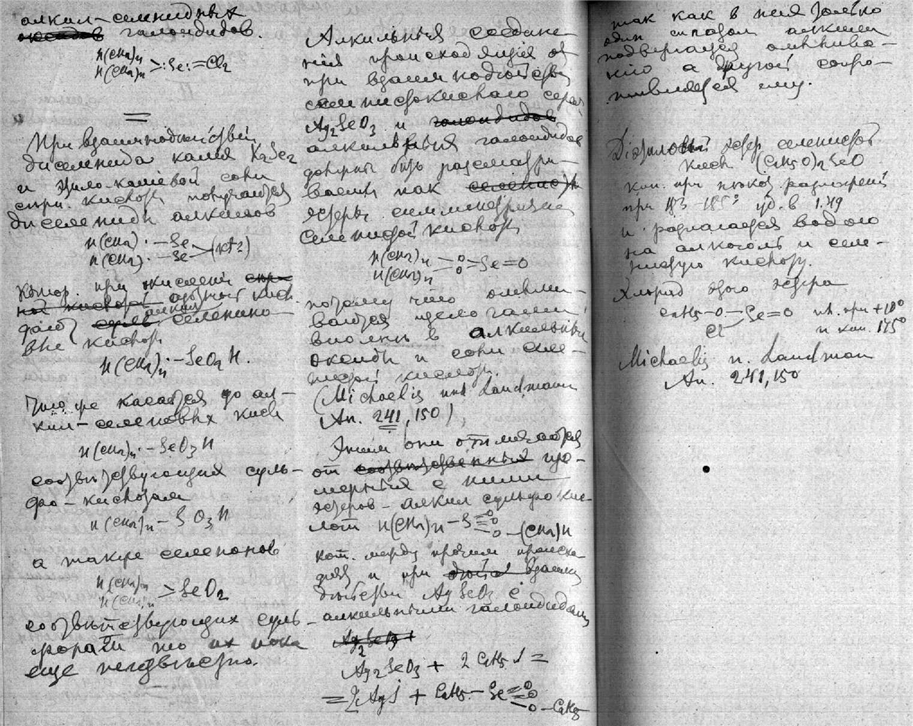 алкил-селенидных
галоидидов.
H(CH2)n
H(CH2)n >:Se:=Cl2
При взаимнодействии
диселенида калия K2Se2
и
кислот получаются
диселениды алкилов
H(CH2)·–Se
H(CH2)·–Se
котор. при
дают селенино-
вые кислоты
H(CH2)n·–SeO2H.
Что же касается до ал-
кил-селеновых кисл
H(CH2)n·–SeO3H
соответствующих суль-
фо-кислотам
H(CH2)n–SO3H
а также селенонов
H(CH2)n
H(CH2)n >SeO2
соответствующих суль-
фонам то их пока
еще неизвестно.
Алкильные соедине-
ния происходящие от
при взаимнодействии
селенистокислого серебра
Ag2SeO3 и галоидидов
алкильных галоидидов
должны быть рассматри-
ваемы как селенист
эфиры симметрической
селенистой кислоты
H(CH2)n –O
H(CH2)n –O >Se=O
потому что омыли-
ваются щелочами
вполне в алкильные
оксиды и соли селе-
нистой кислоты.
(Michaelis und Landmann
An. 241, 150)
Этим они отличаются
от соответственных изо-
мерных с ними
эфиров - алкил сульфо кис-
лот H(CH2)n–S =O =O –O–(CH2)H
кот. между прочим происхо-
дят и при взаим
действии Ag SeO3 с
алкильными галоидидами
Ag2SeO3
Ag2SeO3 + 2 C2H5J =
= 2AgJ + C2H5–Se =O =O –O–C2H5
так как в них только
один алкил
подвергается омылива-
нию а другой сопро-
тивляется ему.
Диэтиловый эфир селенистой
кисл (C2H5O)2SeO
кип. при разложении
при 183–185° уд. в 1.49
и разлагается водою
на алкоголь и селе-
нистую кислоту.
Хлорид этого эфира
C2H5–O–Se=O пл. при +10°
Cl и кип. 175°
Michaelis u. Landman
An. 241,150